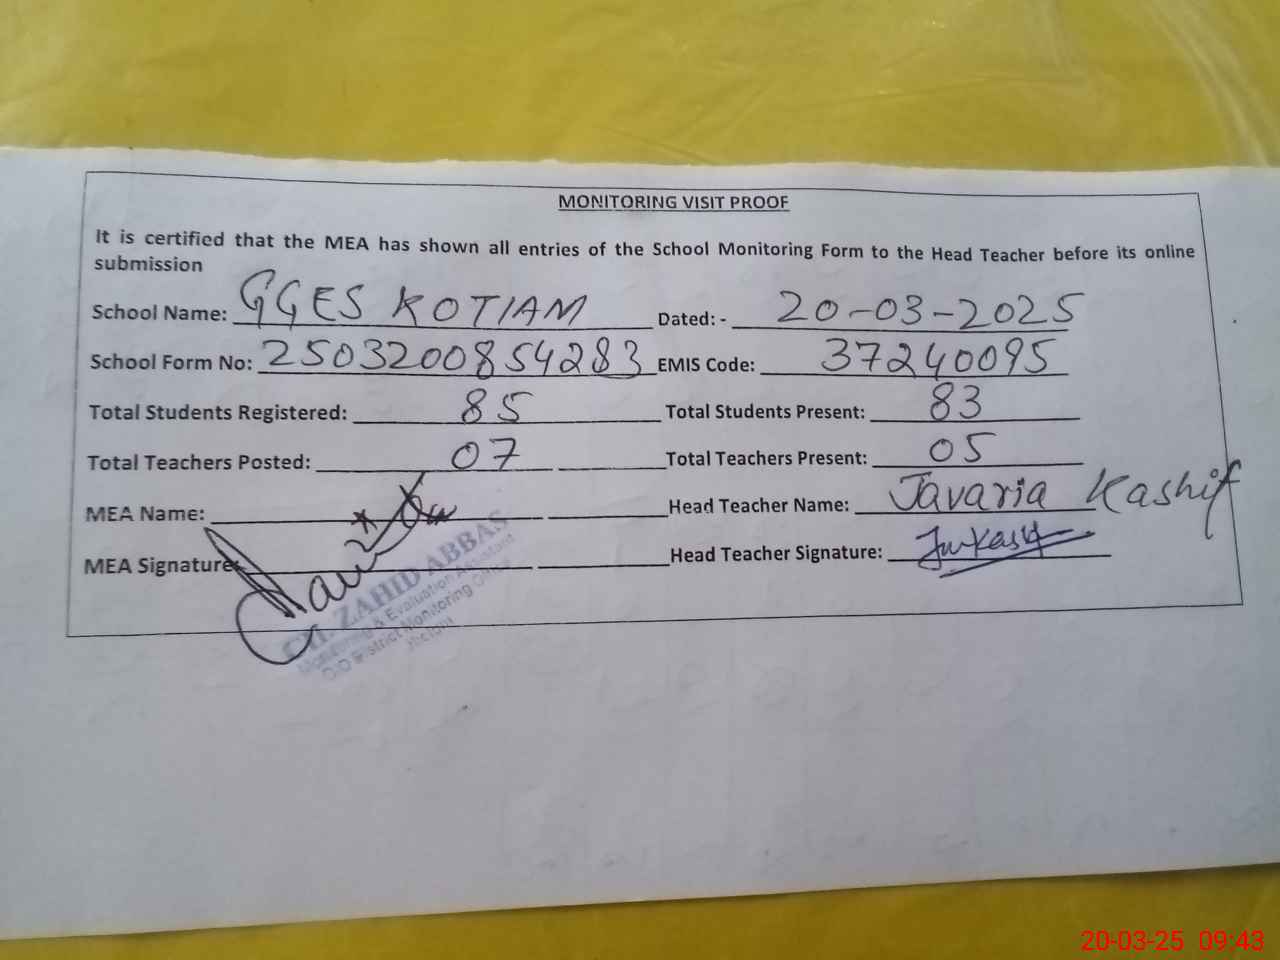 MONITORING VISIT PROOF
It is certified that the MEA has shown all entries of the School Monitoring Form to the Head Teacher before its online
submission
School Name: GGES KOTIAM Dated: - 20-03-2025
School Form No: 2503200854283 EMIS Code: 37240095
Total Students Registered: 85 Total Students Present: 83
Total Teachers Posted: 07 Total Teachers Present: 05
MEA Name: Head Teacher Name: Javaria Kashif
MEA Signature Head Teacher Signature:
CH. ZAHID ABBAS
Monitoring & Evaluation Assistant
O/O District Monitoring Office
Jhelum
20-03-25 09:43